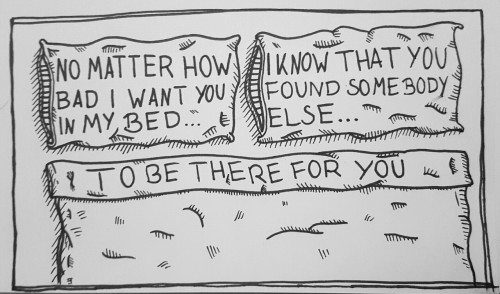 NO MATTER HOW
BAD I WANT YOU
IN MY BED...
I KNOW THAT YOU
FOUND SOMEBODY
ELSE...
TO BE THERE FOR YOU